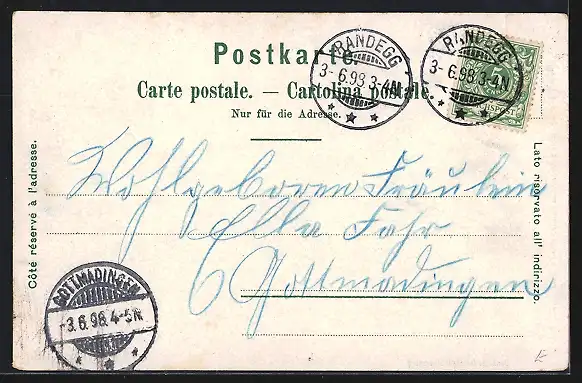 Postkarte.
Carte postale. — Cartolina postale.
Nur für die Adresse.
RANDEGG
3-6.98.3-4N.
RANDEGG
3-6.98.3-4N.
Côté réservé à l'adresse.
Lato riservato all' indirizzo.
Wohlgeboren Fräulein
Ella Fahr
Gottmadingen
GOTTMADINGEN
-3.6.98.4-5N.